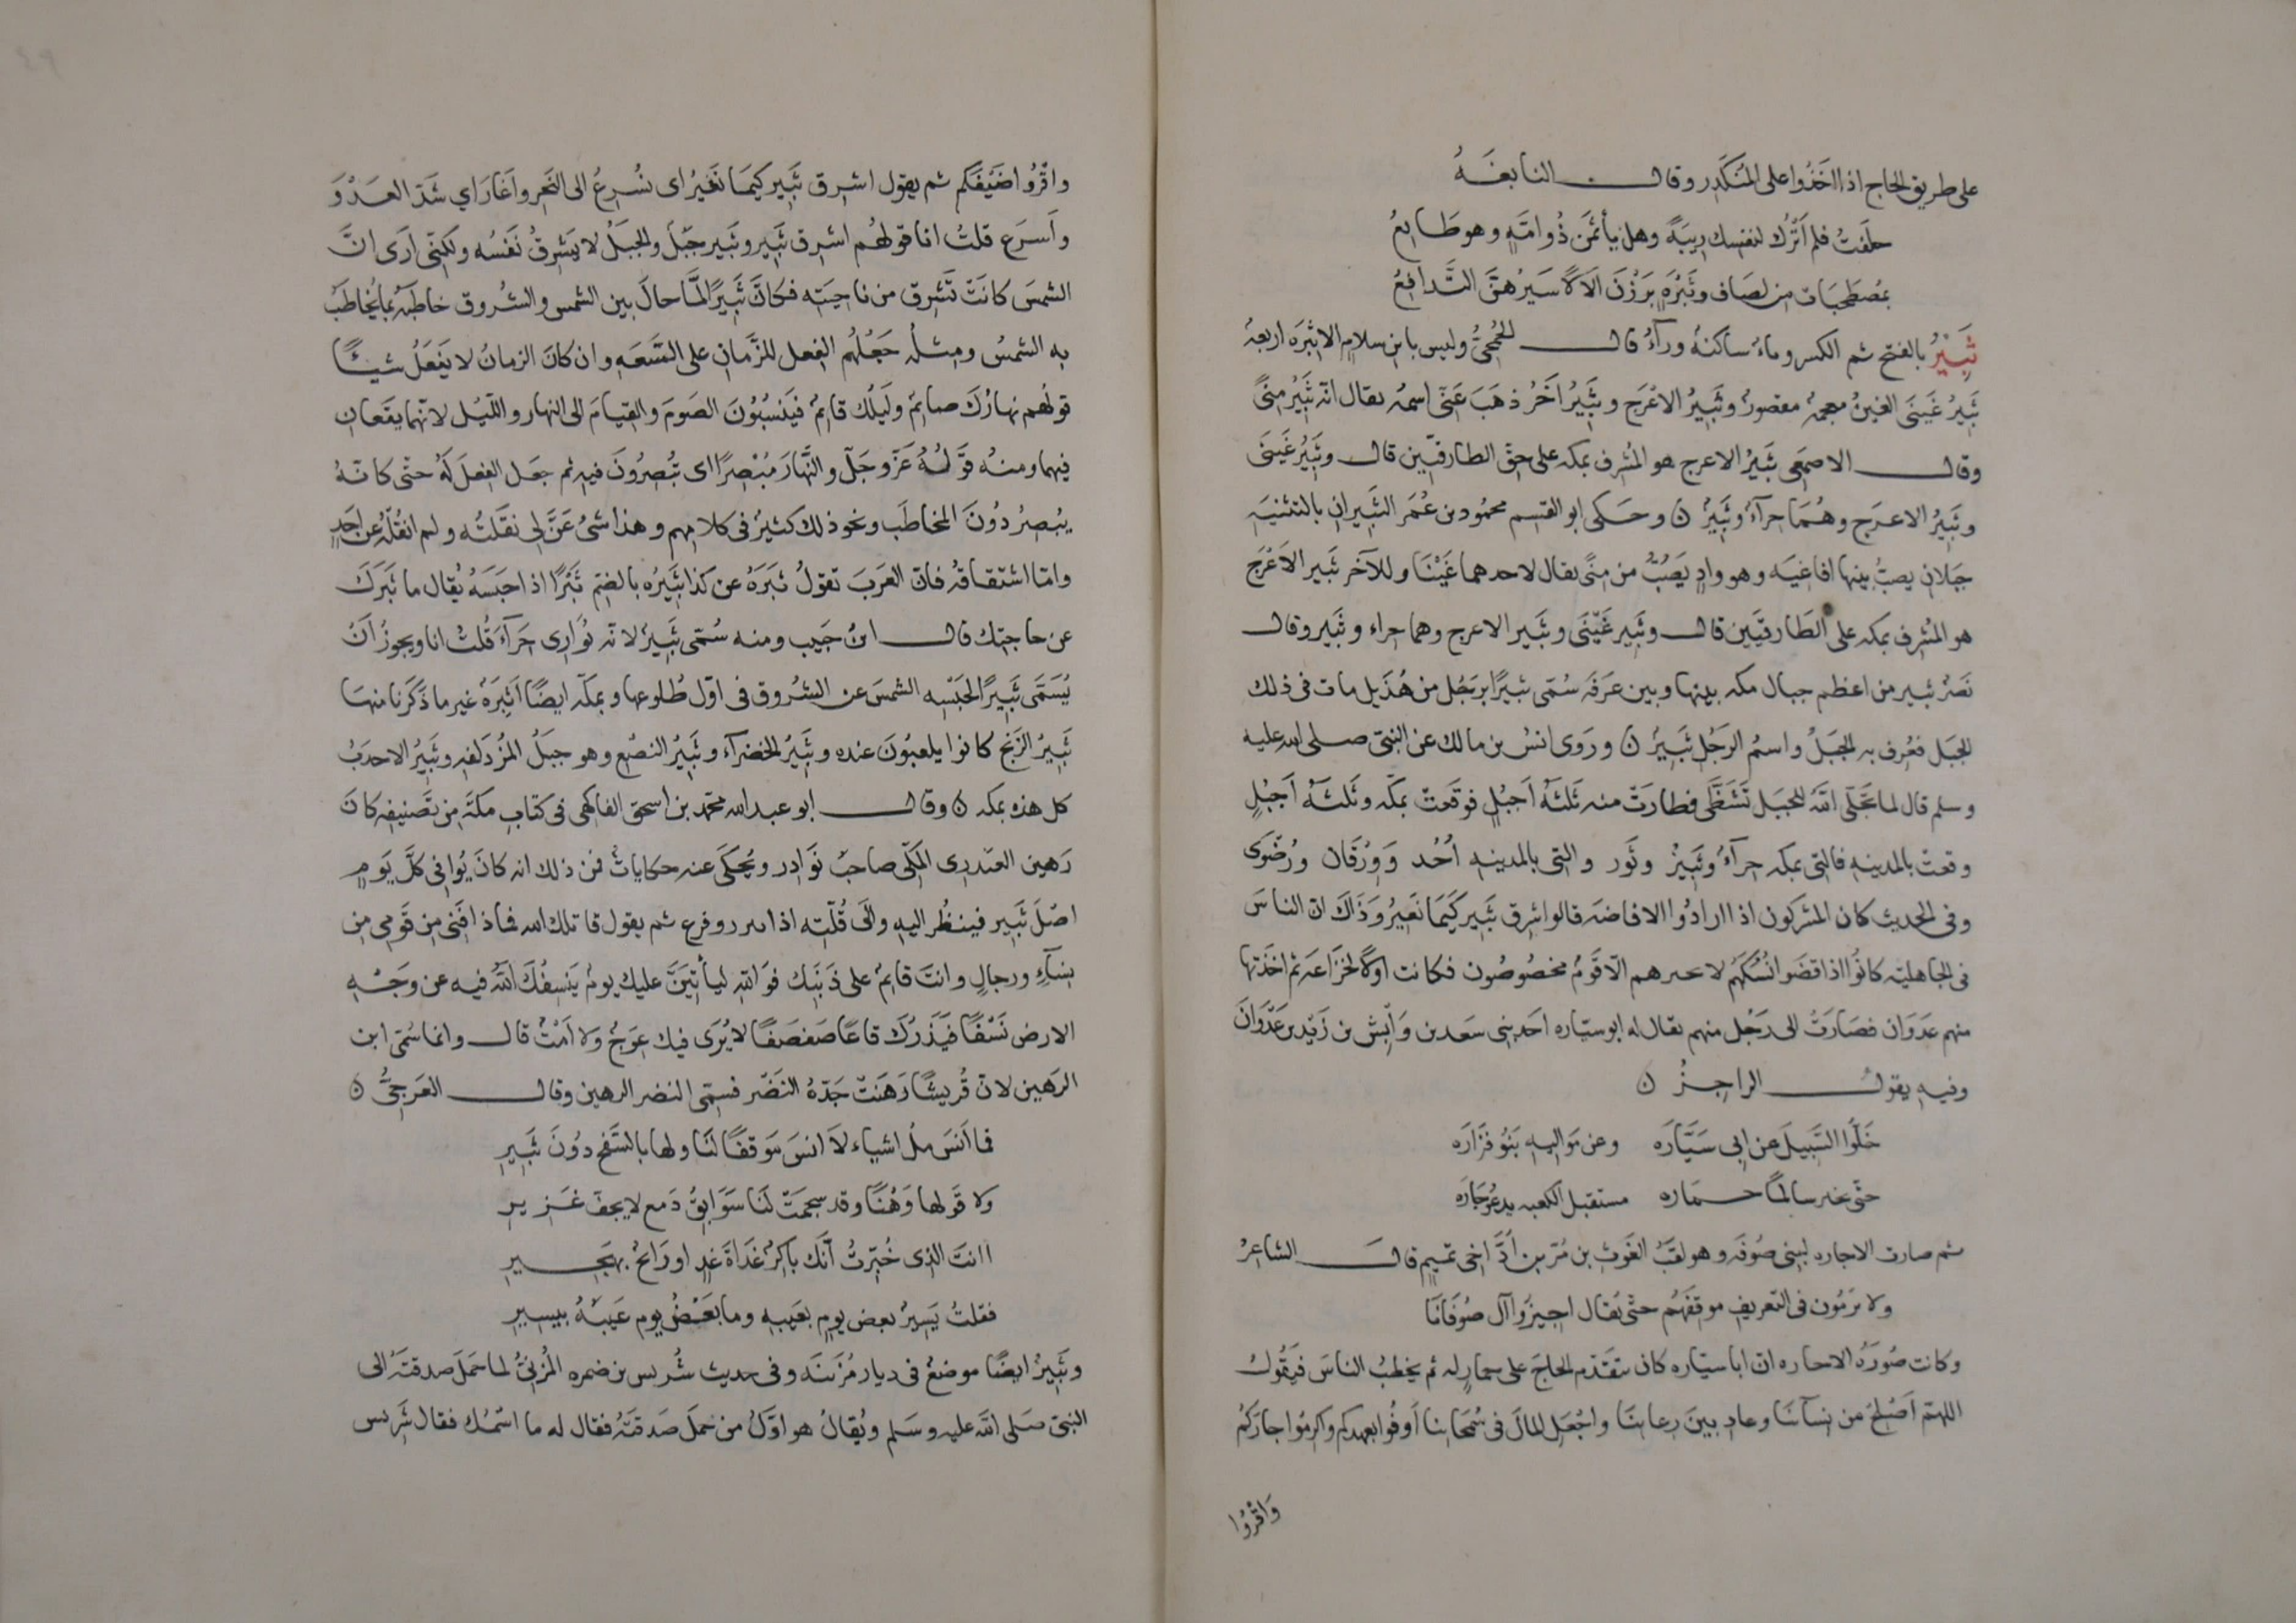 على طريق الحاج اذا اخذوا على المنكدر وقال النابغة
حلفت فلم اترك لنفسك ريبة وهل يأثمن ذو امّة وهو طايع
بمصطحبات من لصاف وثبرة يزرن الالا سيرهنّ التّدافع
ثَبِيْرُ بالفتح ثم الكسر وياء ساكنة ورآء قال الجمحىّ وليس بابن سلام الاثبرة اربعة
ثبير غينى الغين معجمة مقصور وثبير الاعرج وثبير اخر ذهب عنّى اسمه يقال انّه ثبير منىً
وقال الاصمعى ثبير الاعرج هو المشرف بمكه على حق الطارقيّين قال وثبير غينى
وثبير الاعرج وهما حرآء وثبير ن وحكى ابو القسم محمود بن عمر الثبيران بالتثنيه
جبلان يصبّ بينها افاعيه وهو وادٍ يصبّ من منىً يقال لاحدهما غينا وللآخر ثبير الاعرج
هو المشرف بمكه على الطارقيّين قال وثبير غينى وثبير الاعرج وهما حراء وثبير وقال
نصر ثبير من اعظم جبال مكه بينها وبين عرفه سمّى ثبيرا برجل من هذيل مات فى ذلك
الجبل فعرف به الجبل واسم الرجل ثبير ن وروى انس بن مالك عن النبى صلى الله عليه
وسلم قال لما تجلّى الله للجبل تشظّى فطارت منه ثلثه اجبل فوقعت بمكّه وثلثه اجبل
وقعت بالمدينه فالتى بمكه حرآء وثبير وثور والتى بالمدينه احد وورقان ورضوى
وفى الحديث كان المشركون اذا ارادوا الافاضه قالوا اشرق ثبير كيما نغير وذاك انّ الناس
فى الجاهلية كانوا اذا قضوا نسكهم لا الّا قوم مخصوصون فكانت اولا لخزاعه ثم اخذتها
منهم عدوان فصارت الى رجل منهم يقال له ابو سيّاره احد بنى سعد بن وابش بن زيد بن عدوان
وفيه يقول الراجز ن
خلّوا السّبيل عن ابى سيّاره وعن مواليه بنو فزاره
حتّى سالما حماره مستقبل الكعبه يدعو جاره
ثم صارت الاجاره لبنى صوفه وهو لقب الغوث بن مرّ بن ادّ اخى تميم قال الشاعر
ولا يرمون فى التعريف موقفهم حتّى يقال اجيزوا آل صوفانا
وكانت صورة الاجاره انّ ابا سيّاره كان يتقدّم الحاجّ على حمار له ثم يخطب الناس فيقول
اللهمّ اصلح من نسآئنا وعاد بين رعائنا واجعل المال فى سمحائنا اوفوا بعهدكم واكرموا جاركم
واقروا
واقروا ضيفكم ثم يقول اشرق ثبير كيما نغير اى نسرع الى النحر واغار اي شدّ العدو
واسرع قلت انا قولهم اشرق ثبير وثبير جبل والجبل لا يشرق نفسه ولكنّى ارى انّ
الشمس كانت تشرق من ناحيته فكانّ ثبيرا لمّا حال بين الشمس والشروق خاطبه بما يخاطب
به الشمس ومثله جعلهم الفعل للزمان على السّعه وان كان الزمان لا يفعل شيئًا
قولهم نهارك صائم وليلك قائم فينسبون الصوم والقيام الى النهار والليل لانّهما يقعان
فيهما ومنه قوله عزّ وجلّ والنّهار مبصرًا اى تبصرون فيه ثم جعل الفعل له حتّى كانّه
يبصر دون المخاطب ونحو ذلك كثير فى كلامهم وهذا شىء عنّ لى نقلته ولم انقله عن احد
وامّا اشتقاقه فانّ العرب تقول ثبره عن كذا يثبره بالضم ثبرًا اذا حبسه يقال ما ثبرك
عن حاجتك قال ابن حبيب ومنه سمّى ثبير لانّه يوارى حرآء قلت انا ويجوز ان
يسمّى ثبيرًا لحبسه الشمس عن الشروق فى اوّل طلوعها وبمكّه ايضًا اثبرة غير ما ذكرنا منها
ثبير الزنج كانوا يلعبون عنده وثبير الخضرآء وثبير النصع وهو جبل المزدلفه وثبير الاحدب
كل هذه بمكه ن وقال ابو عبد الله محمّد بن اسحق الفاكهى فى كتاب مكة من تصنيفه كان
رهين العبدرى المكّى صاحب نوادر ويحكى عنه حكايات فمن ذلك انه كان يوافى كلّ يوم
اصل ثبير فينظر اليه والى قلّته اذا وفرغ ثم يقول قاتلك الله فماذا افنى من قومى من
نسآء ورجال وانت قائم على ذنبك فو الله ليأتينّ عليك يوم ينسفك الله فيه عن وجه
الارض نسفًا فيذرك قاعًا صفصفًا لا يرى فيك عوج ولا امت قال وانما سمّى ابن
الرهين لانّ قريشًا رهنت جدّه النضر فسمّى النضر الرهين وقال العرجىّ ن
فما انس ملاشياء لا انس موقفًا لنا ولها بالسفح دون ثبير
ولا قولها وهنًا وقد سجمت لنا سوابق دمع لا يجف غزير
اانت الذى خبّرت انّك باكر غداة غد او رائح بهجير
فقلت يسير بعض يوم بغيبه وما بعض يوم غيبه بيسير
وثبير ايضًا موضع فى ديار مزينه وفى حديث شريس بن ضمره المزنىّ لما حمل صدقته الى
النبىّ صلى الله عليه وسلم ويقال هو اوّل من حمل صدقته فقال له ما اسمك فقال شريس